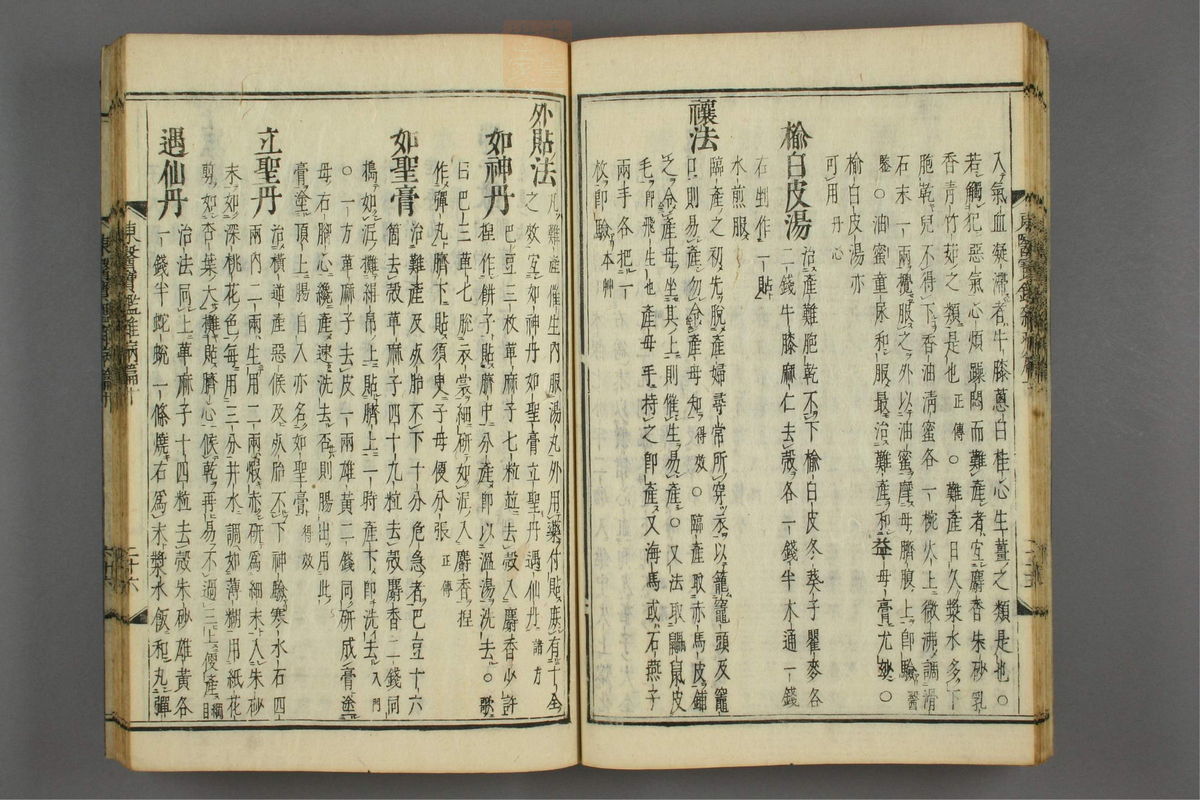 入氣血凝滯者牛膝蔥白桂心生薑之類是也○
若觸犯惡氣心煩躁悶而難產者宜麝香朱砂乳
香青竹茹之類是也正傳○難產日久漿水多下
胞乾兒不得下香油清蜜各一椀火上微沸調滑
石末一兩攪服之外以油蜜摩母臍腹上卽驗醫
鑑○油蜜童尿和服最治難產和益母膏尤妙○
榆白皮湯亦
可用丹心
榆白皮湯
治產難胞乾不下榆白皮冬葵子瞿麥各
二錢牛膝麻仁去殼各一錢半木通一錢
右剉作一貼
水煎服
禳法
臨產之初先脫產婦尋常所穿衣以籠竈頭及竈
口則易產勿令產母知得效○臨產取赤馬皮鋪
之令產母坐其上則催生易產○又法取鼺鼠皮
毛卽飛生也產母手持之卽產又海馬或石燕子
兩手各把一
枚卽驗本艸
外貼法
凡難產催生內服湯丸外用藥付貼庶有十全
之效宜如神丹如聖膏立聖丹遇仙丹諸方
如神丹
巴豆三枚萆麻子七粒並去殼入麝香少許
捏作餠子貼臍中分產卽以溫湯洗去○歌
曰巴三萆七脫衣裳細硏如泥入麝香捏
作彈丸臍下貼須臾子母便分張正傳
如聖膏
治難產及死胎不下十分危急者巴豆十六
箇去殼萆麻子四十九粒去殼麝香二錢同
搗如泥攤絹帛上貼臍上一時產下卽洗去入門
○一方萆麻子去皮一兩雄黃二錢同硏成膏塗
母右脚心纔產速洗去否則腸出用此
膏塗頂上腸自入亦名如聖膏得效
立聖丹
治橫逆產惡候及死胎不下神驗寒水石四
兩內二兩生用二兩煅赤硏爲細末入朱砂
末如深桃花色每用三分井水調如薄糊用紙花
剪如杏葉大攤貼臍心候乾再易不過三上便產綱目
遇仙丹
治法同上萆麻子十四粒去殼朱砂雄黃各
一錢半蛇蛻一條燒右爲末漿水飯和丸彈
東醫寶鑑雜病篇十
二十六